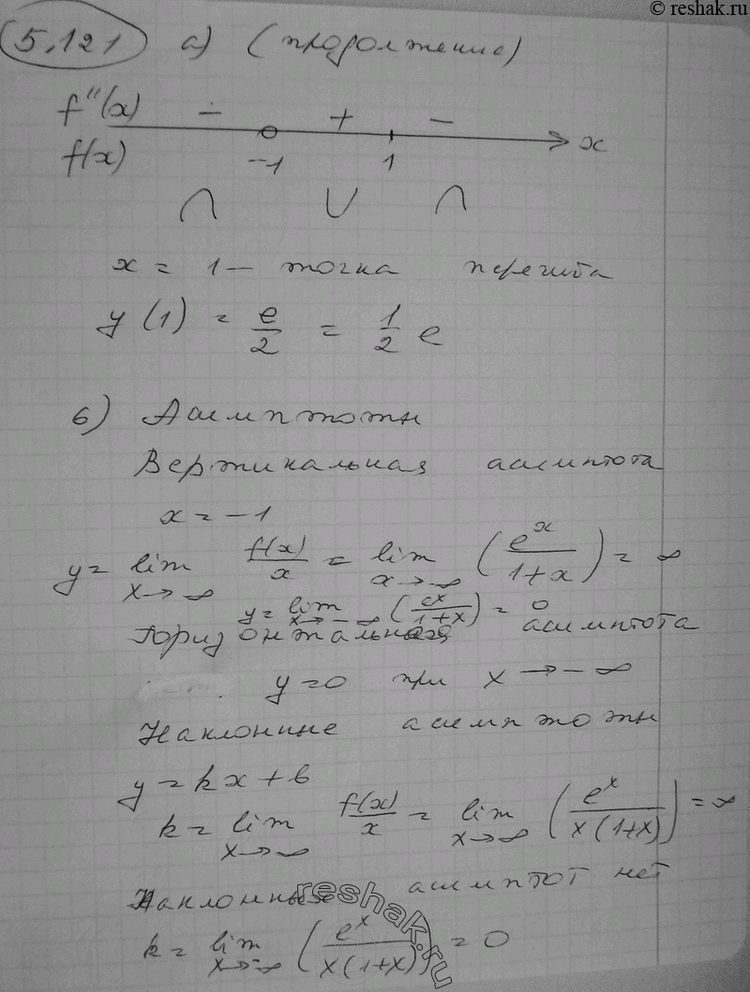 © reshak.ru
5.121 а) (продолжение)
f''(x) − + −
f(x) −1 1 x
∩ ∪ ∩
x = 1 — точка перегиба
y(1) = e/2 = 1/2 e
6) Асимптоты
Вертикальная асимптота
x = −1
y = lim x→∞ f(x)/x = lim x→∞ (e^x/(1+x)) = ∞
y = lim x→−∞ (e^x/(1+x)) = 0
Горизонтальная асимптота
y=0 при x → −∞
Наклонные асимптоты
y = kx + b
k = lim x→∞ f(x)/x = lim x→∞ (e^x/(x(1+x))) = ∞
Наклонных асимптот нет
k = lim x→−∞ (e^x/(x(1+x))) = 0
reshak.ru